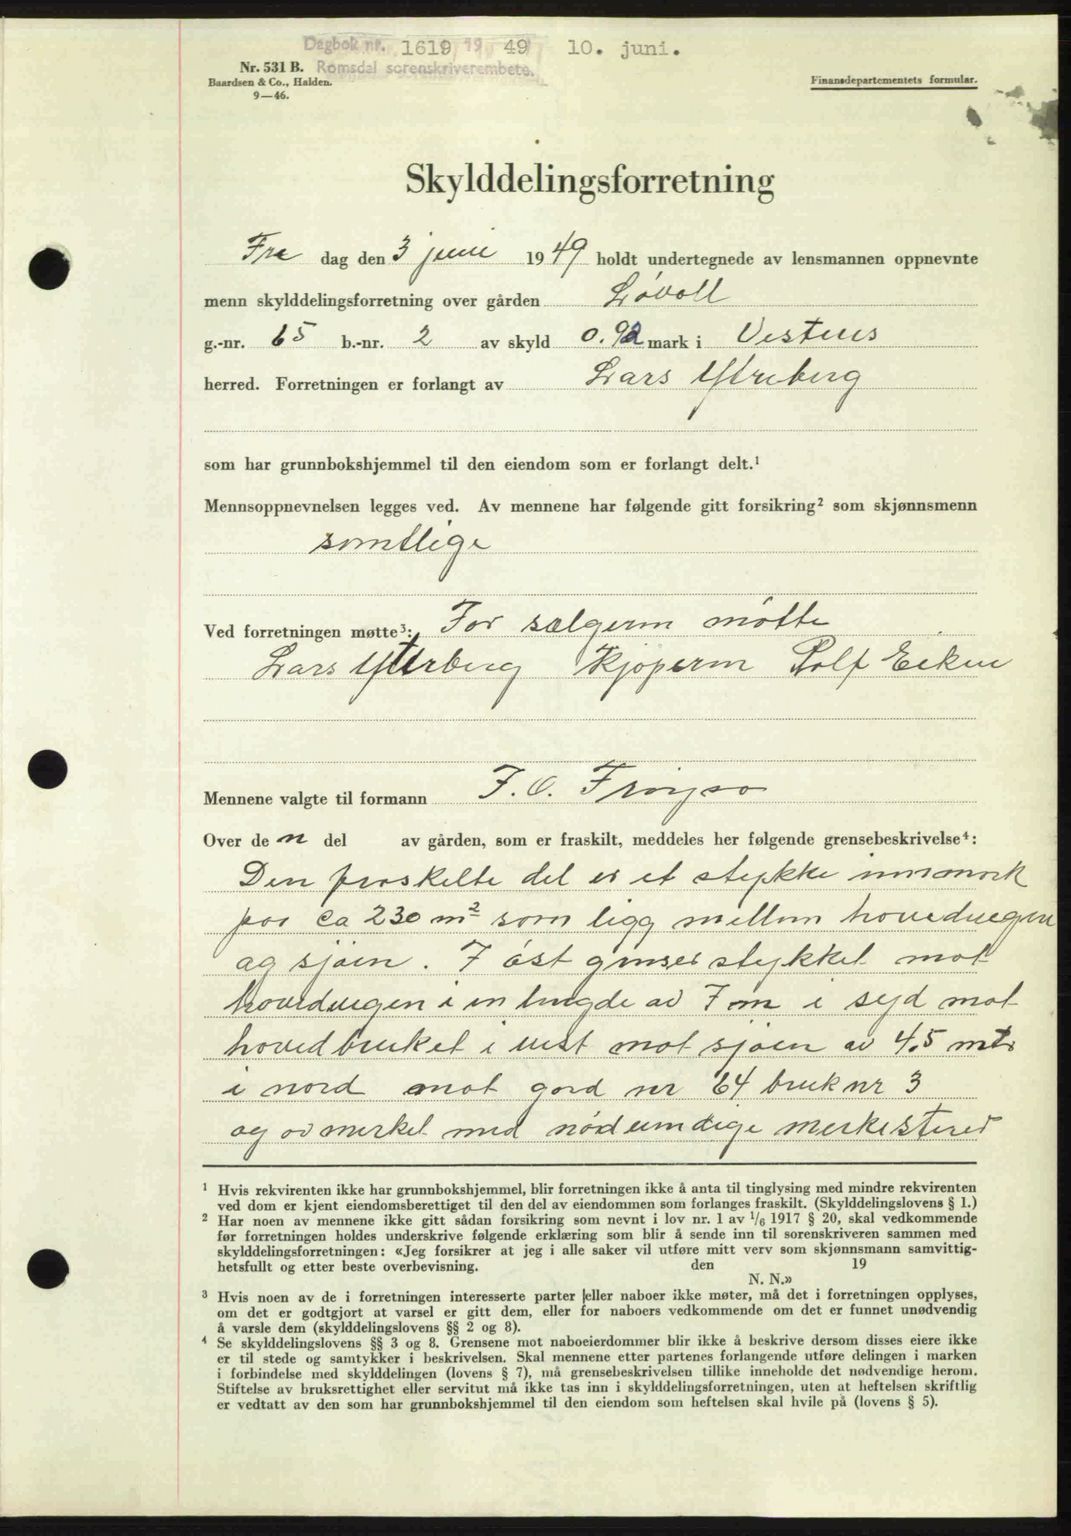 Dagbok nr. 1619 19 49 10. juni.
Romsdal sorenskriverembete.
Nr. 531 B.
Baardsen & Co., Halden.
9—46.
Finansdepartementets formular.
Skylddelingsforretning
Fre dag den 3 juni 1949 holdt undertegnede av lensmannen oppnevnte
menn skylddelingsforretning over gården Løvoll
g.-nr. 65 b.-nr. 2 av skyld 0.92 mark i Vestnes
herred. Forretningen er forlangt av Lars Ytreberg
som har grunnbokshjemmel til den eiendom som er forlangt delt.¹
Mennsoppnevnelsen legges ved. Av mennene har følgende gitt forsikring² som skjønnsmenn
samtlige
Ved forretningen møtte³: For sælgeren møtte
Lars Ytterberg Kjøperen Rolf Eiken
Mennene valgte til formann F. O.
Over de n del av gården, som er fraskilt, meddeles her følgende grensebeskrivelse⁴:
Den fraskelte del er et stykke innmark
paa ca 230 m² som ligg mellem hovedvegen
og sjøen. I øst grenser stykket mot
hovedvegen i en lengde av 7 m i syd mot
hovedbruket i vest mot sjøen av 4,5 mtr
i nord mot gard nr 64 bruk nr 3
og avmerket med nødvendige merkestener
¹ Hvis rekvirenten ikke har grunnbokshjemmel, blir forretningen ikke å anta til tinglysing med mindre rekvirenten
ved dom er kjent eiendomsberettiget til den del av eiendommen som forlanges fraskilt. (Skylddelingslovens § 1.)
² Har noen av mennene ikke gitt sådan forsikring som nevnt i lov nr. 1 av 1/6 1917 § 20, skal vedkommende
før forretningen holdes underskrive følgende erklæring som blir å sende inn til sorenskriveren sammen med
skylddelingsforretningen: «Jeg forsikrer at jeg i alle saker vil utføre mitt verv som skjønnsmann samvittig-
hetsfullt og etter beste overbevisning. den 19
N. N.»
³ Hvis noen av de i forretningen interesserte parter eller naboer ikke møter, må det i forretningen opplyses,
om det er godtgjort at varsel er gitt dem, eller for naboers vedkommende om det er funnet unødvendig
å varsle dem (skylddelingslovens §§ 2 og 8).
⁴ Se skylddelingslovens §§ 3 og 8. Grensene mot naboeierdommer blir ikke å beskrive dersom disses eiere ikke
er til stede og samtykker i beskrivelsen. Skal mennene etter partenes forlangende utføre delingen i marken
i forbindelse med skylddelingen (lovens § 7), må grensebeskrivelsen tillike inneholde det nødvendige herom.
Stiftelse av bruksrettighet eller servitut må ikke tas inn i skylddelingsforretningen, uten at heftelsen skriftlig
er vedtatt av den som har grunnbokshjemmel til den eiendom som heftelsen skal hvile på (lovens § 5).